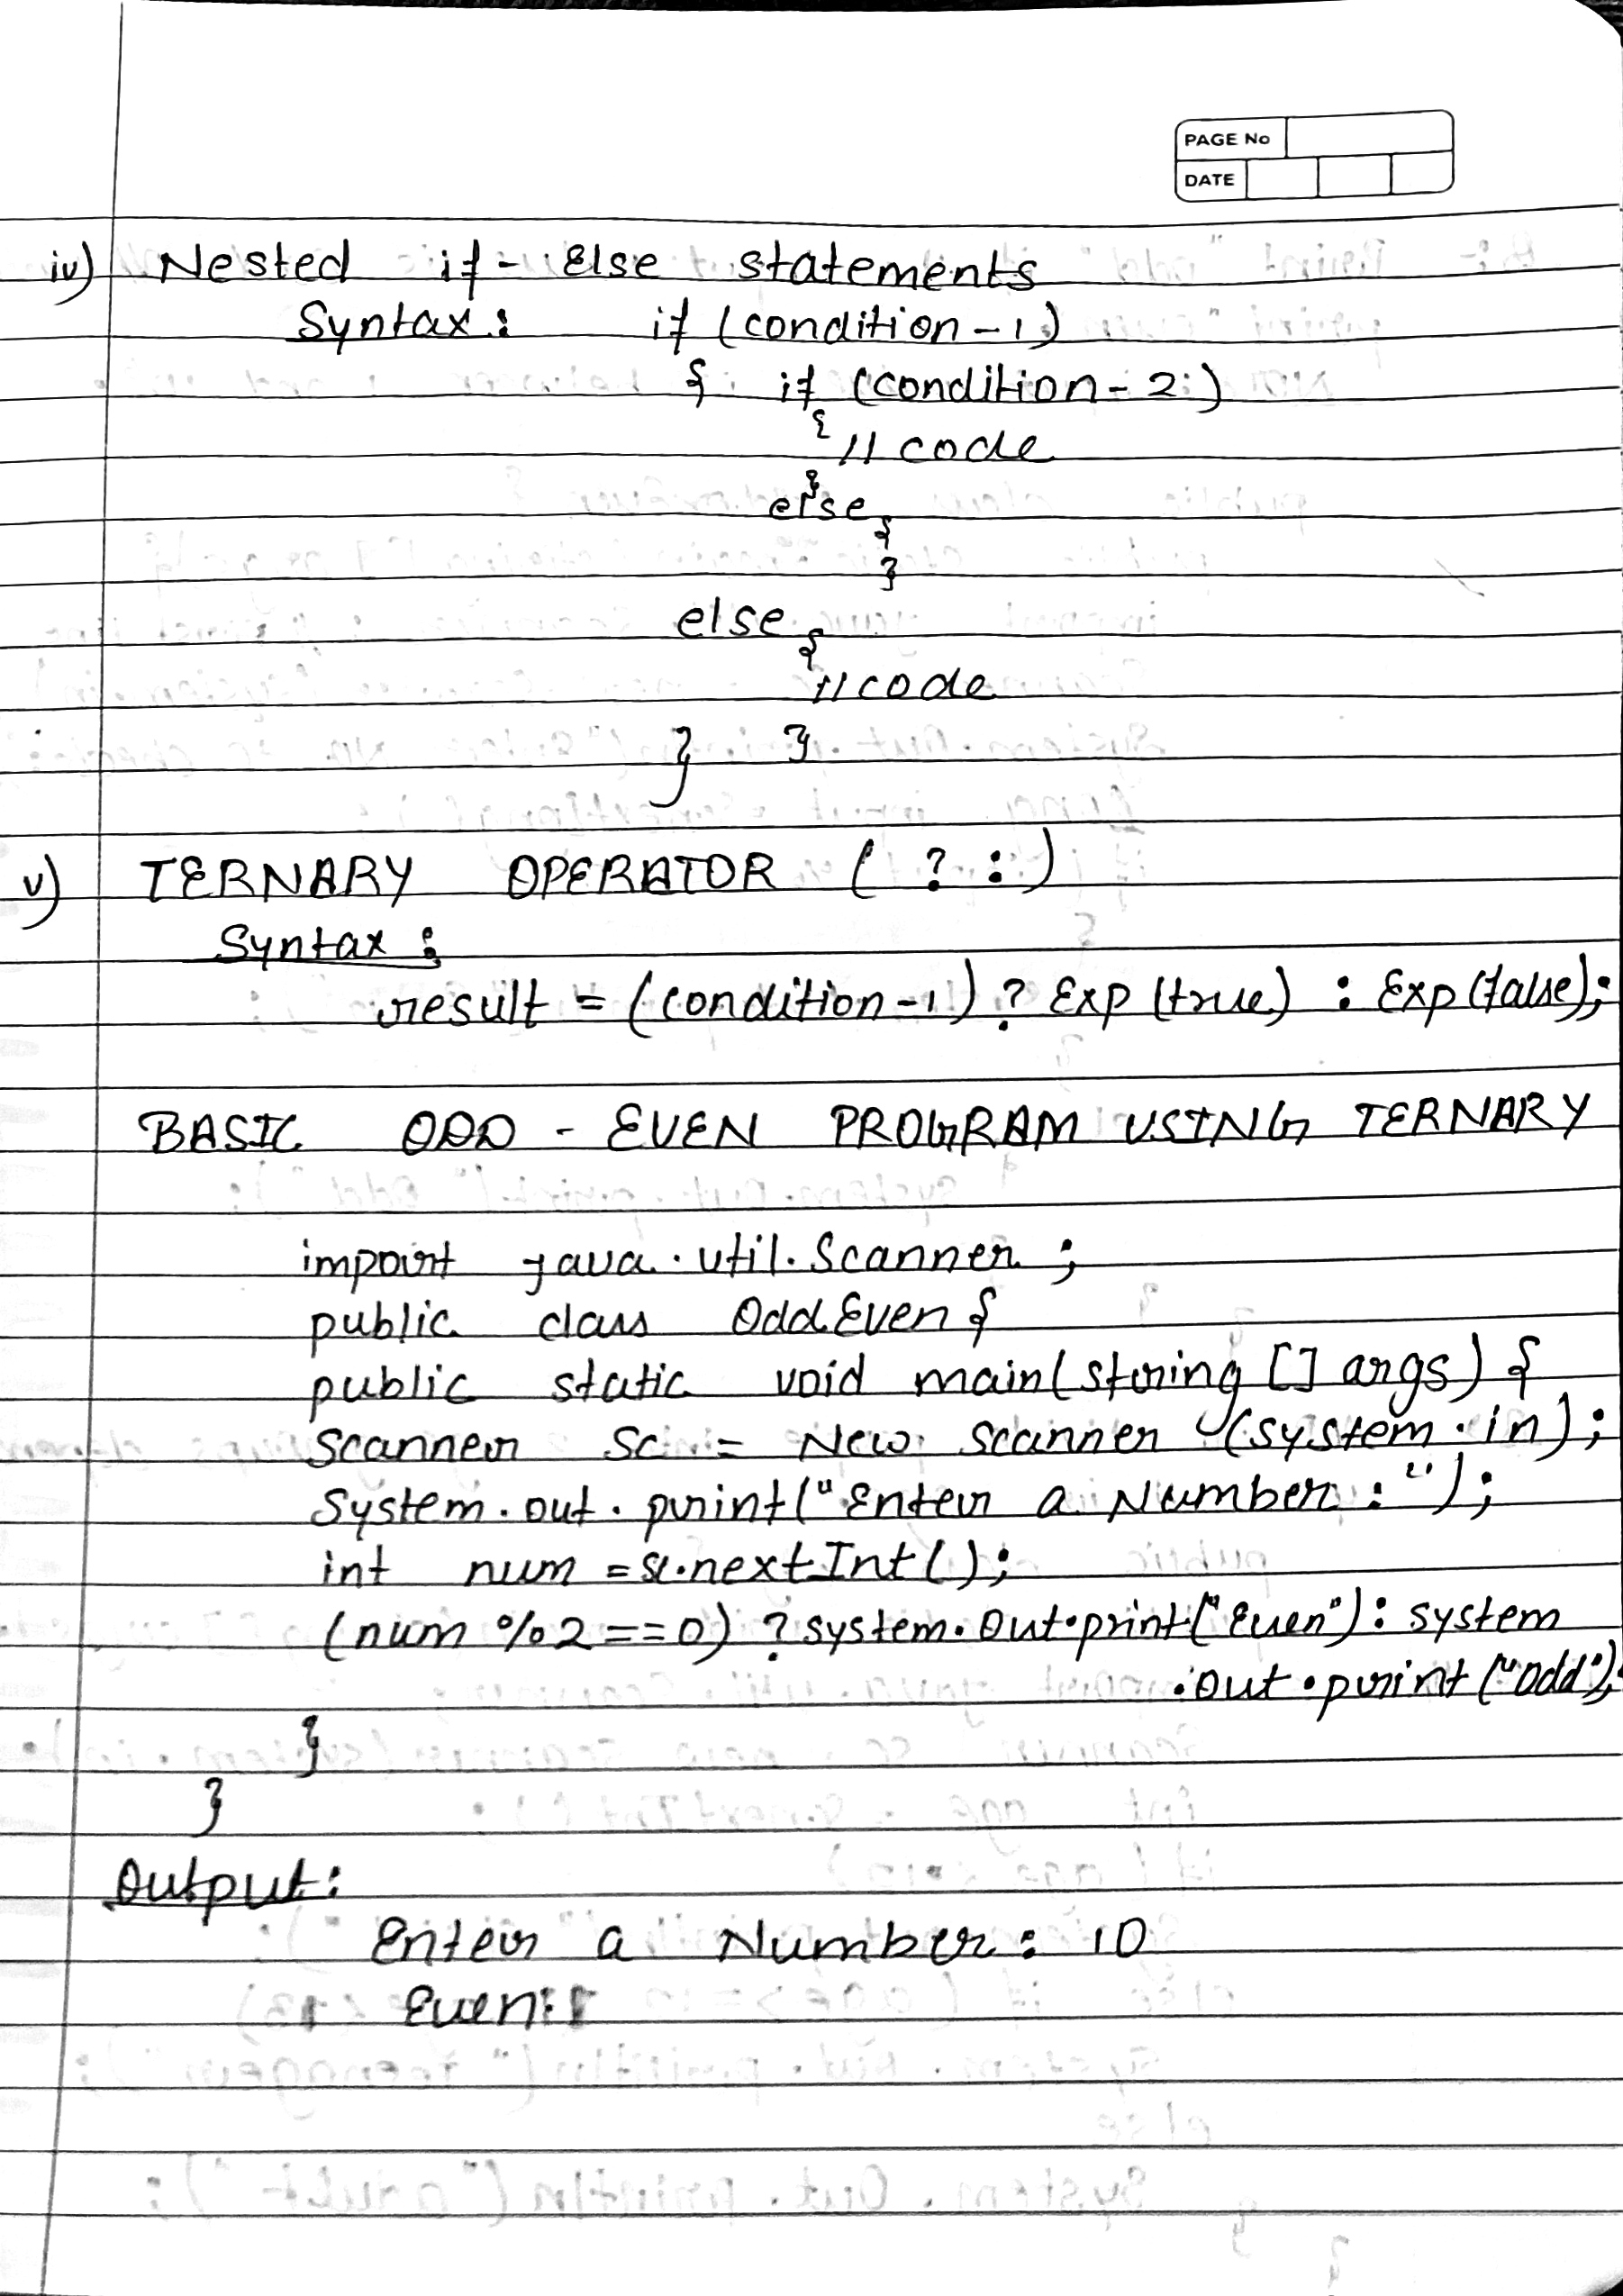 PAGE No
DATE
iv) Nested if - else statements
Syntax : if (condition - 1)
{ if (condition - 2)
{
// code
}
else {
}
else {
// code
} }
v) TERNARY OPERATOR ( ? : )
Syntax :
result = (condition - 1) ? Exp (true) : Exp (false);
BASIC ODD - EVEN PROGRAM USING TERNARY
import java.util.Scanner ;
public class OddEven {
public static void main(string [] args) {
Scanner Sc = New Scanner (system.in);
System.out.print("Enter a Number : ");
int num = sc.nextInt();
(num %2 == 0) ? system.out.print("Even") : system
.out.print("odd");
}
}
Output:
Enter a Number : 10
Even